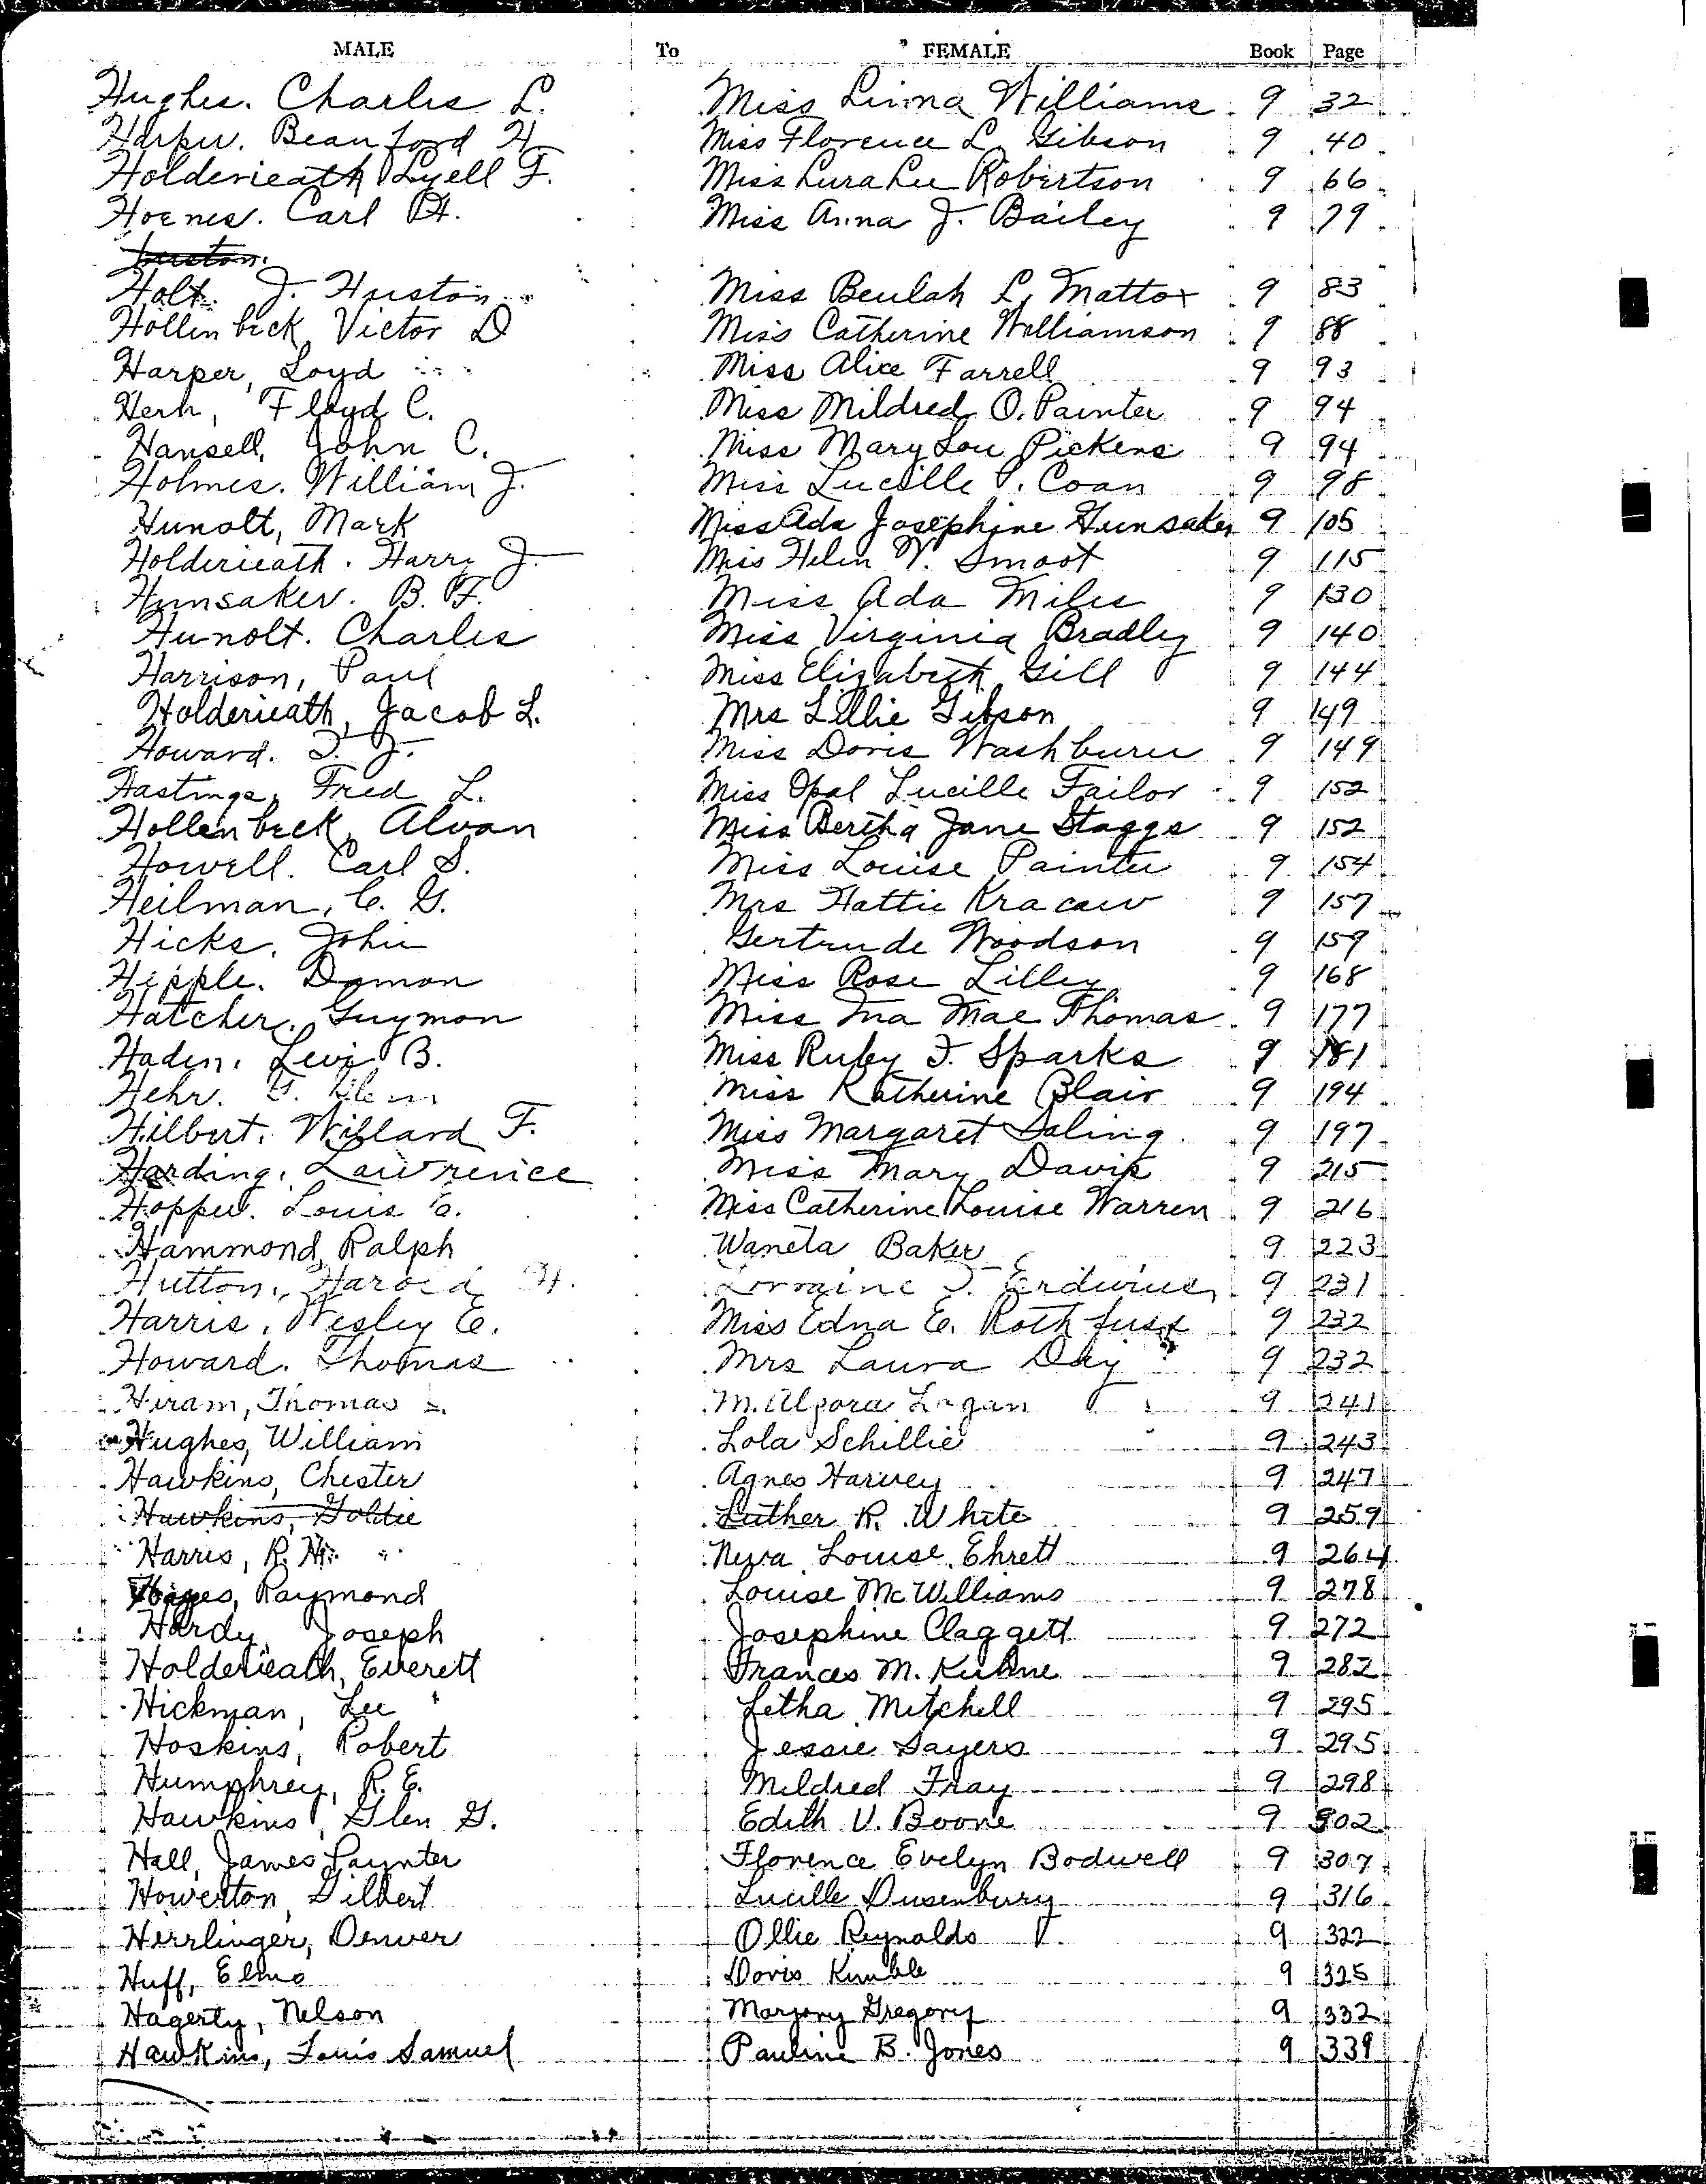 MALE To FEMALE Book Page
Hughes. Charles L. Miss Linna Williams 9 32
Harper. Beauford H. Miss Florence L. Gibson 9 40
Holderieath Lyell F. Miss Lura Lee Robertson 9 66
Hoenes. Carl H. Miss Anna J. Bailey 9 79
Holt. J. Huston Miss Beulah L. Mattox 9 83
Hollenbeck Victor D Miss Catherine Williamson 9 88
Harper, Loyd Miss Alice Farrell 9 93
Hern, Floyd C. Miss Mildred O. Painter 9 94
Hansell, John C. Miss Mary Lou Pickens 9 94
Holmes. William J. Miss Lucille P. Coan 9 98
Hunolt, Mark Miss Ada Josephine Hunsaker 9 105
Holderieath. Harry J. Miss Helen V. Smoot 9 115
Hunsaker. B. F. Miss Ada Miles 9 130
Hunolt. Charles Miss Virginia Bradley 9 140
Harrison, Paul Miss Elizabeth Gill 9 144
Holderieath, Jacob L. Mrs Lillie Gibson 9 149
Howard. T. J. Miss Doris Washburn 9 149
Hastings, Fred L. Miss Opal Lucille Failor 9 152
Hollenbeck, Alvan Miss Bertha Jane Staggs 9 152
Howell. Carl S. Miss Louise Painter 9 154
Heilman, C. G. Mrs Hattie Kracaw 9 157
Hicks, John Gertrude Woodson 9 159
Hepple. Damon Miss Rose Lilley 9 168
Hatcher. Guymon Miss Ina Mae Thomas 9 177
Haden, Levi B. Miss Ruby F. Sparks 9 181
Hehr. G. Miss Katherine Blair 9 194
Hilbert. Willard F. Miss Margaret Saling 9 197
Harding, Lawrence Miss Mary Davis 9 215
Hopper. Louis E. Miss Catherine Louise Warren 9 216
Hammond, Ralph Waneta Baker 9 223
Hutton, Harold H. Lorraine 9 231
Harris, Wesley E. Miss Edna E. Rothfuss 9 232
Howard. Thomas Mrs Laura Day 9 232
Hiram, Thomas L. M. Logan 9 241
Hughes, William Lola Schillie 9 243
Hawkins, Chester Agnes Harvey 9 247
Hawkins, Goldie Luther R. White 9 259
Harris, R. H. Neva Louise Ehrett 9 264
Raymond Louise McWilliams 9 278
Hardy Joseph Josephine Claggett 9 272
Holderieath, Everett Frances M. Kuhne 9 282
Hickman, Lee Letha Mitchell 9 295
Hoskins, Robert Jessie Sayers 9 295
Humphrey, R. E. Mildred Fray 9 298
Hawkins, Glen G. Edith V. Boone 9 302
Hall, James Paynter Florence Evelyn Bodwell 9 307
Howerton, Gilbert Lucille Dusenbury 9 316
Herrlinger, Denver Ollie Reynolds V. 9 322
Huff, Elmo Doris Kimble 9 325
Hagerty, Nelson Marjory Gregory 9 332
Hawkins, Louis Samuel Pauline B. Jones 9 339